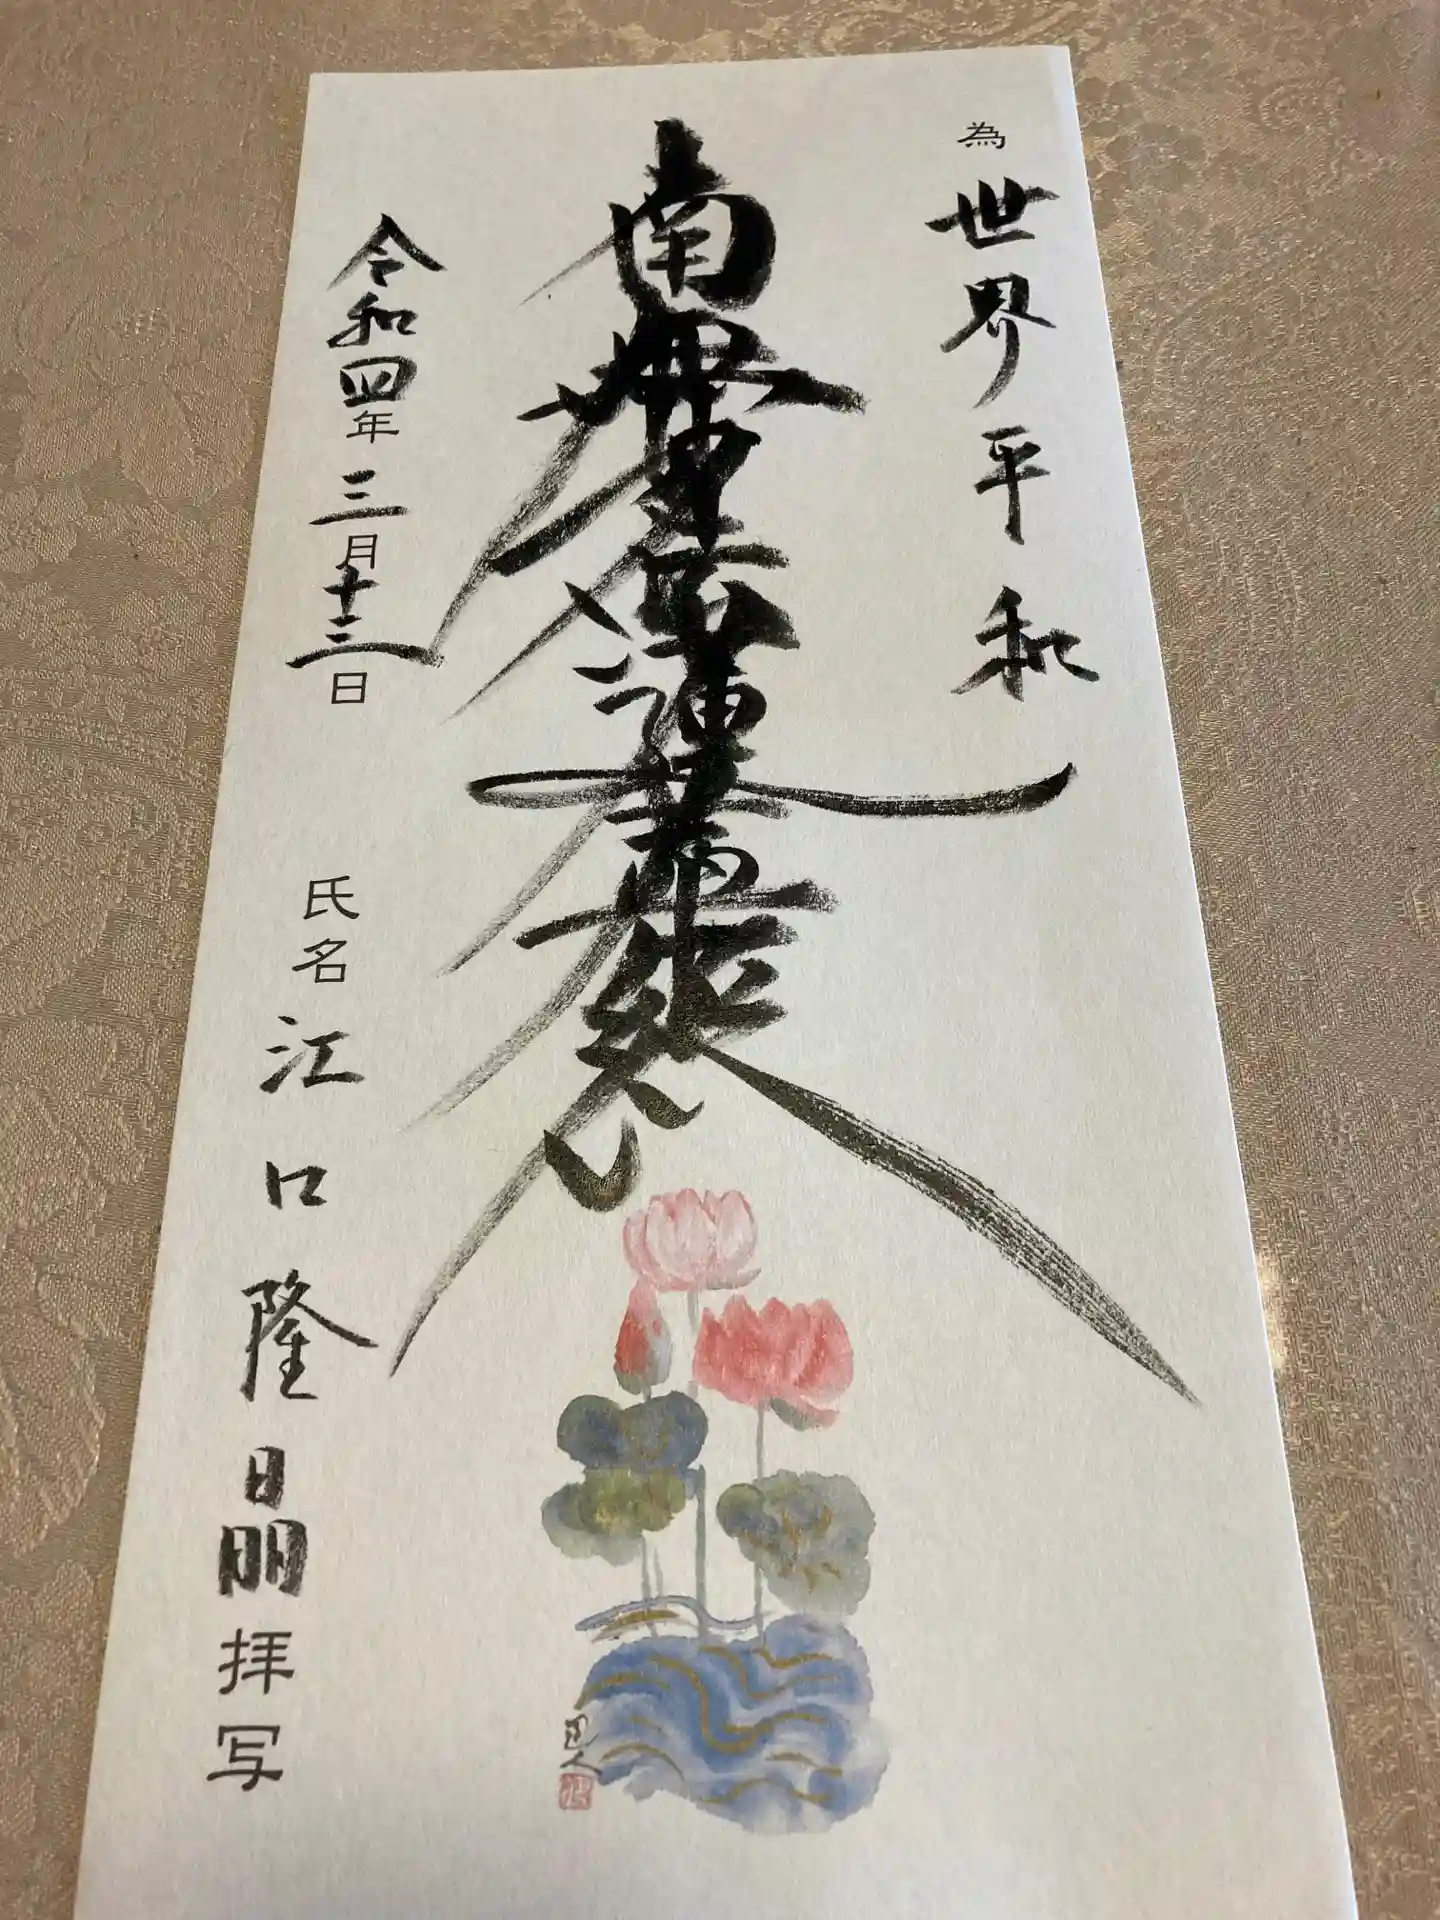 為 世界平和
南無妙法蓮華経
令和四年三月十三日
氏名 江口隆晶拝写